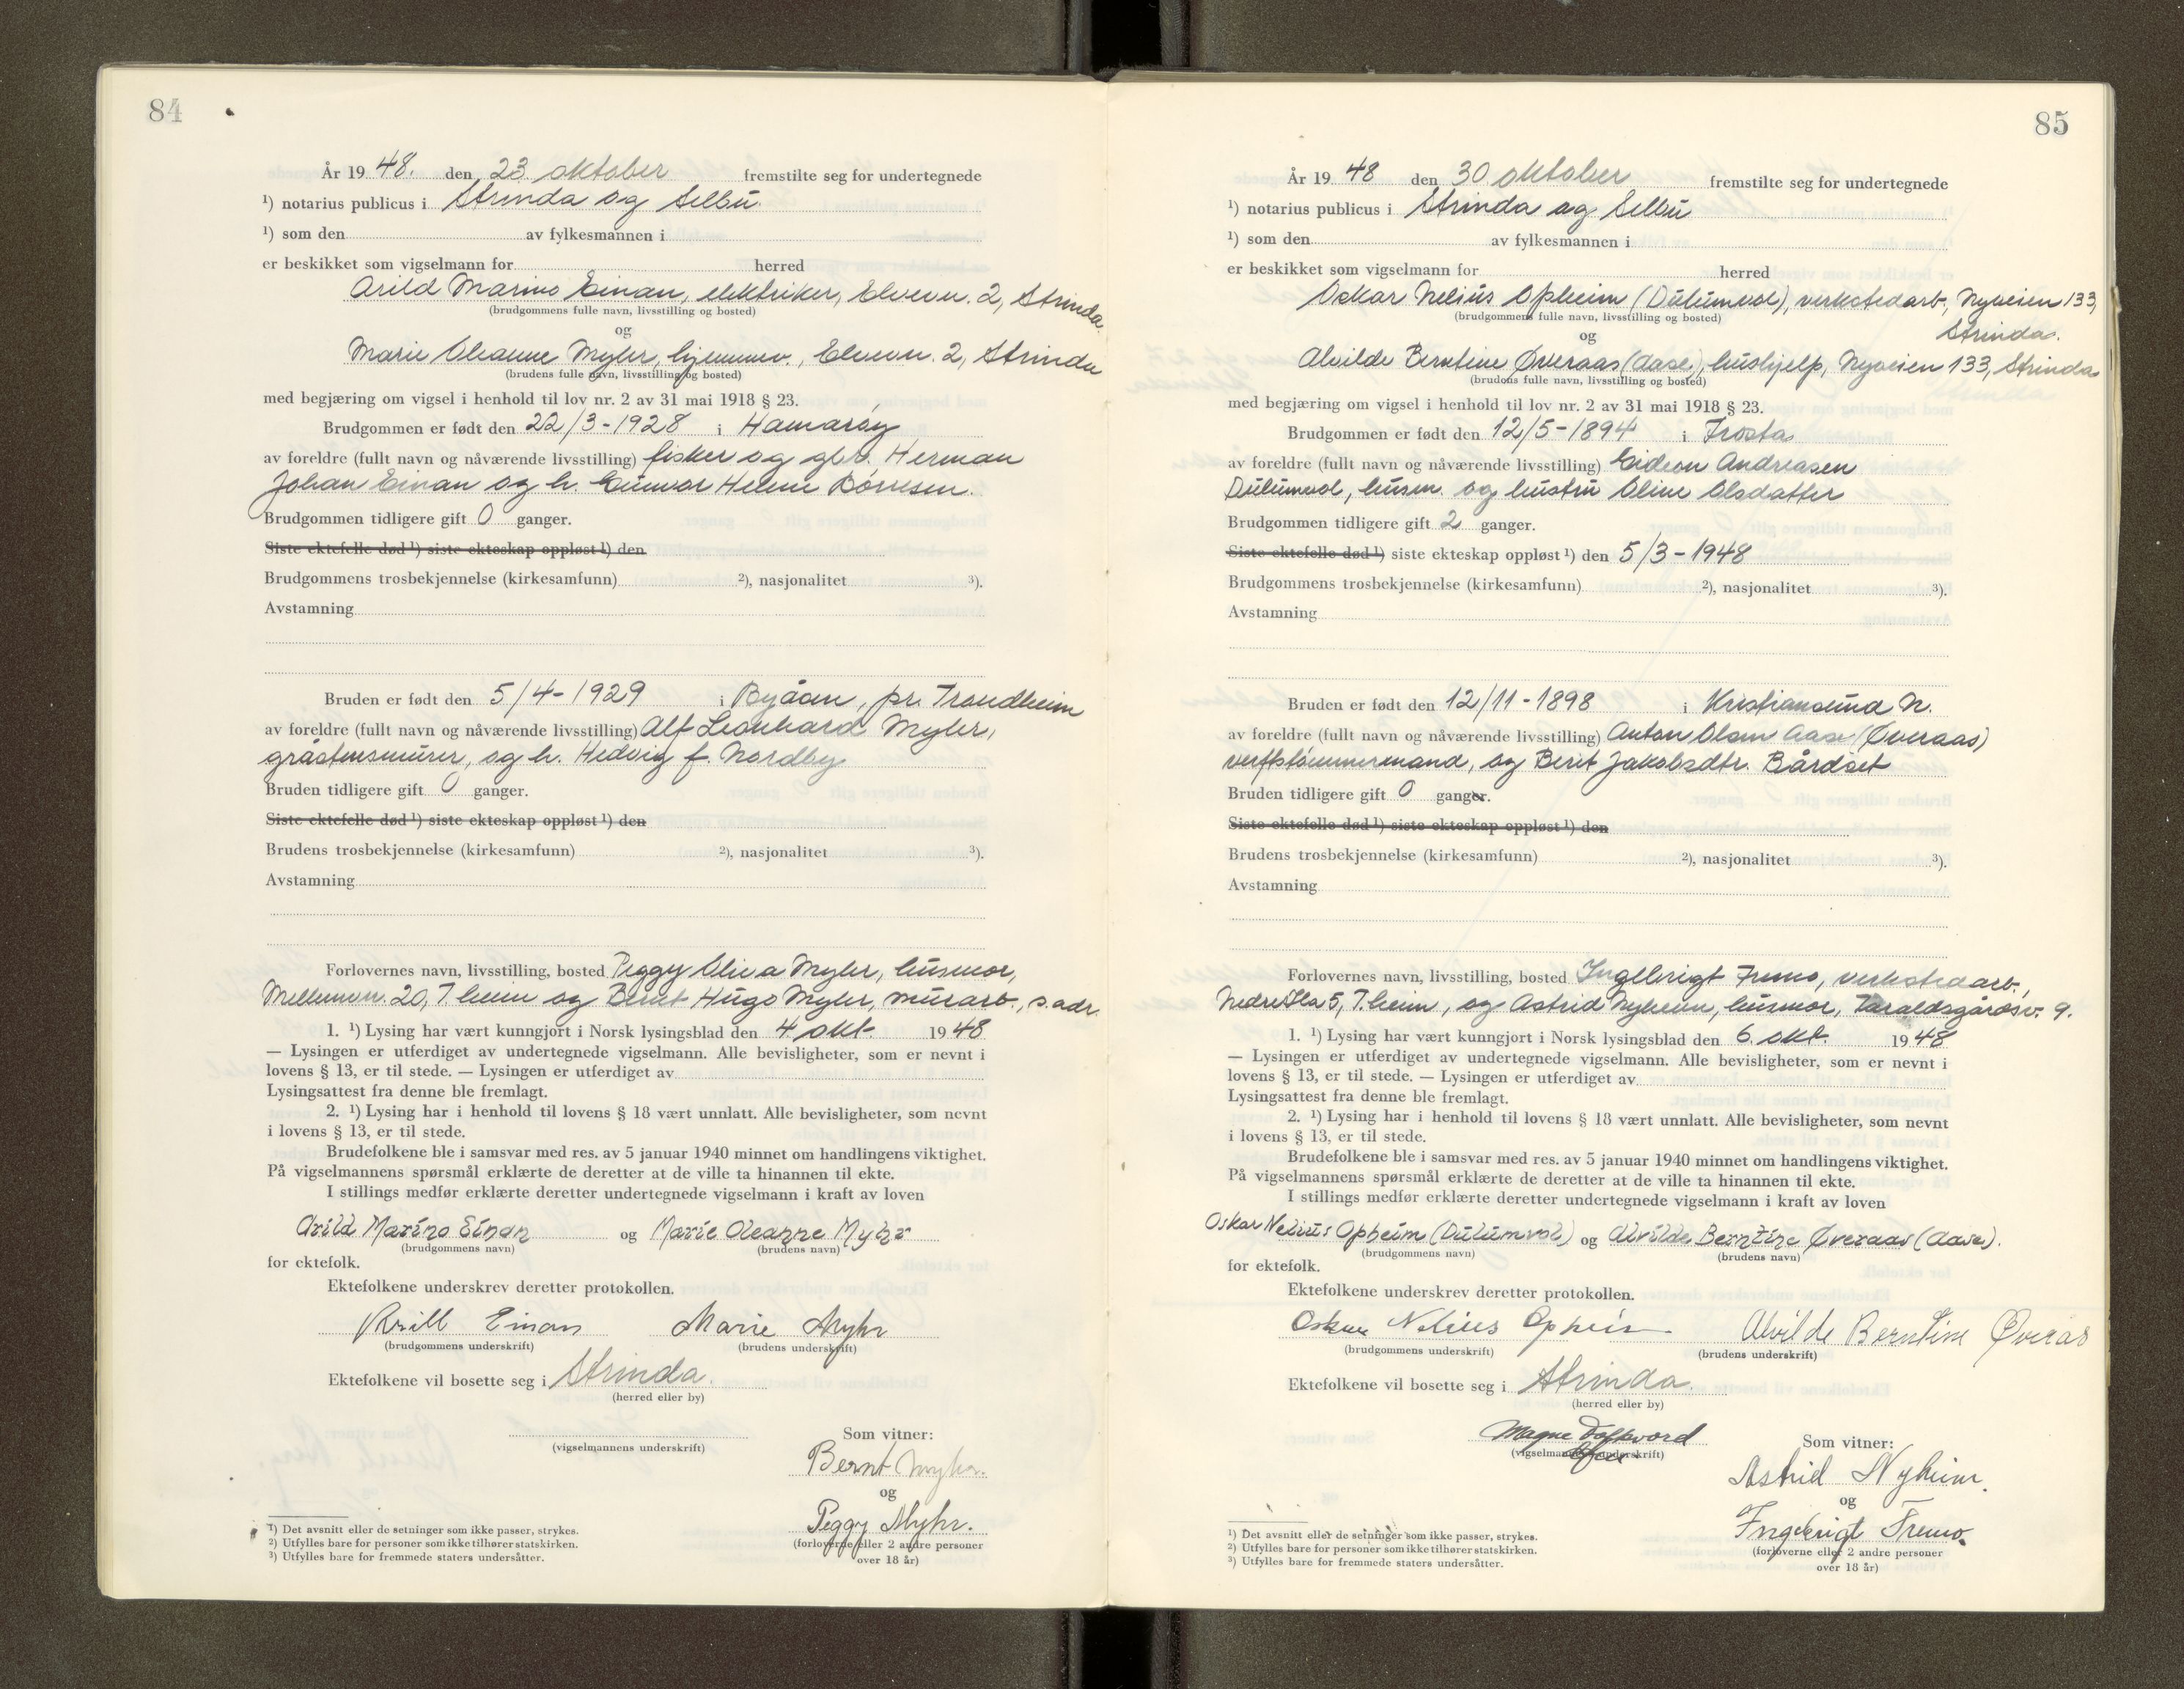 84
År 19 48. den 23 oktober fremstilte seg for undertegnede
¹) notarius publicus i Strinda og Selbu.
¹) som den av fylkesmannen i
er beskikket som vigselmann for herred
Arild Marino Einan, elektriker, Elvevn. 2, Strinda.
(brudgommens fulle navn, livsstilling og bosted)
og
Marie Oleanne Myhr, hjemmev., Elvevn. 2, Strinda
(brudens fulle navn, livsstilling og bosted)
med begjæring om vigsel i henhold til lov nr. 2 av 31 mai 1918 § 23.
Brudgommen er født den 22/3-1928 i Hamarøy
av foreldre (fullt navn og nåværende livsstilling) fisker og gbr. Herman
Johan Einan og h. Gunvor Helene Børresen.
Brudgommen tidligere gift 0 ganger.
Siste ektefelle død ¹) siste ekteskap oppløst ¹) den
Brudgommens trosbekjennelse (kirkesamfunn) ²), nasjonalitet ³).
Avstamning
Bruden er født den 5/4-1929 i Byåsen, pr. Trondheim
av foreldre (fullt navn og nåværende livsstilling) Alf Leonhard Myhr,
gråstensmurer, og h. Hedvig f. Nordby
Bruden tidligere gift 0 ganger.
Siste ektefelle død ¹) siste ekteskap oppløst ¹) den
Brudens trosbekjennelse (kirkesamfunn) ²), nasjonalitet ³).
Avstamning
Forlovernes navn, livsstilling, bosted Peggy Myhr, husmor,
20, T.heim og Bernt Hugo Myhr, murarb., s. adr.
1. ¹) Lysing har vært kunngjort i Norsk lysingsblad den 4. okt. 19 48
— Lysingen er utferdiget av undertegnede vigselmann. Alle bevisligheter, som er nevnt i
lovens § 13, er til stede. — Lysingen er utferdiget av
Lysingsattest fra denne ble fremlagt.
2. ¹) Lysing har i henhold til lovens § 18 vært unnlatt. Alle bevisligheter, som nevnt
i lovens § 13, er til stede.
Brudefolkene ble i samsvar med res. av 5 januar 1940 minnet om handlingens viktighet.
På vigselmannens spørsmål erklærte de deretter at de ville ta hinannen til ekte.
I stillings medfør erklærte deretter undertegnede vigselmann i kraft av loven
Arild Marino Einan og Marie Oleanne Myhr
(brudgommens navn) (brudens navn)
for ektefolk.
Ektefolkene underskrev deretter protokollen.
Arill Einan Marie Myhr
(brudgommens underskrift) (brudens underskrift)
Ektefolkene vil bosette seg i Strinda.
(herred eller by)
Som vitner:
(vigselmannens underskrift)
Bernt Myhr.
og
Peggy Myhr.
(forloverne eller 2 andre personer
over 18 år)
¹) Det avsnitt eller de setninger som ikke passer, strykes.
²) Utfylles bare for personer som ikke tilhører statskirken.
³) Utfylles bare for fremmede staters undersåtter.
85
År 19 48 den 30 oktober fremstilte seg for undertegnede
¹) notarius publicus i Strinda og Selbu
¹) som den av fylkesmannen i
er beskikket som vigselmann for herred
Oskar Nelius Opheim (Dulumvol), verkstedarb., Nyveien 133,
Strinda.
(brudgommens fulle navn, livsstilling og bosted)
og
Alvilde Berntine Øveraas (Aase), hushjelp, Nyveien 133, Strinda
(brudens fulle navn, livsstilling og bosted)
med begjæring om vigsel i henhold til lov nr. 2 av 31 mai 1918 § 23.
Brudgommen er født den 12/5-1894 i Frosta
av foreldre (fullt navn og nåværende livsstilling) Gideon Andreasen
Dulumvol, husm. og hustru Oline Olsdatter
Brudgommen tidligere gift 2 ganger.
Siste ektefelle død ¹) siste ekteskap oppløst ¹) den 5/3-1948
Brudgommens trosbekjennelse (kirkesamfunn) ²), nasjonalitet ³).
Avstamning
Bruden er født den 12/11-1898 i Kristiansund N.
av foreldre (fullt navn og nåværende livsstilling) Anton Olsen Aase (Øveraas)
verftstømmermand, og Berit Jakobsdtr. Bårdset
Bruden tidligere gift 0 ganger.
Siste ektefelle død ¹) siste ekteskap oppløst ¹) den
Brudens trosbekjennelse (kirkesamfunn) ²), nasjonalitet ³).
Avstamning
Forlovernes navn, livsstilling, bosted Ingebrigt Fremo, verkstedarb.,
Nedre Ila 5, T.heim, og Astrid Nyheim, husmor, Taraldsgårdsv. 9.
1. ¹) Lysing har vært kunngjort i Norsk lysingsblad den 6. okt. 19 48
— Lysingen er utferdiget av undertegnede vigselmann. Alle bevisligheter, som er nevnt i
lovens § 13, er til stede. — Lysingen er utferdiget av
Lysingsattest fra denne ble fremlagt.
2. ¹) Lysing har i henhold til lovens § 18 vært unnlatt. Alle bevisligheter, som nevnt
i lovens § 13, er til stede.
Brudefolkene ble i samsvar med res. av 5 januar 1940 minnet om handlingens viktighet.
På vigselmannens spørsmål erklærte de deretter at de ville ta hinannen til ekte.
I stillings medfør erklærte deretter undertegnede vigselmann i kraft av loven
Oskar Nelius Opheim (Dulumvol) og Alvilde Berntine Øveraas (Aase).
(brudgommens navn) (brudens navn)
for ektefolk.
Ektefolkene underskrev deretter protokollen.
Oskar Nelius Opheim Alvilde Berntine Øverås
(brudgommens underskrift) (brudens underskrift)
Ektefolkene vil bosette seg i Strinda.
(herred eller by)
Magne
(vigselmannens underskrift)
Som vitner:
Astrid Nyheim.
og
Ingebrigt Fremo.
(forloverne eller 2 andre personer
over 18 år)
¹) Det avsnitt eller de setninger som ikke passer, strykes.
²) Utfylles bare for personer som ikke tilhører statskirken.
³) Utfylles bare for fremmede staters undersåtter.